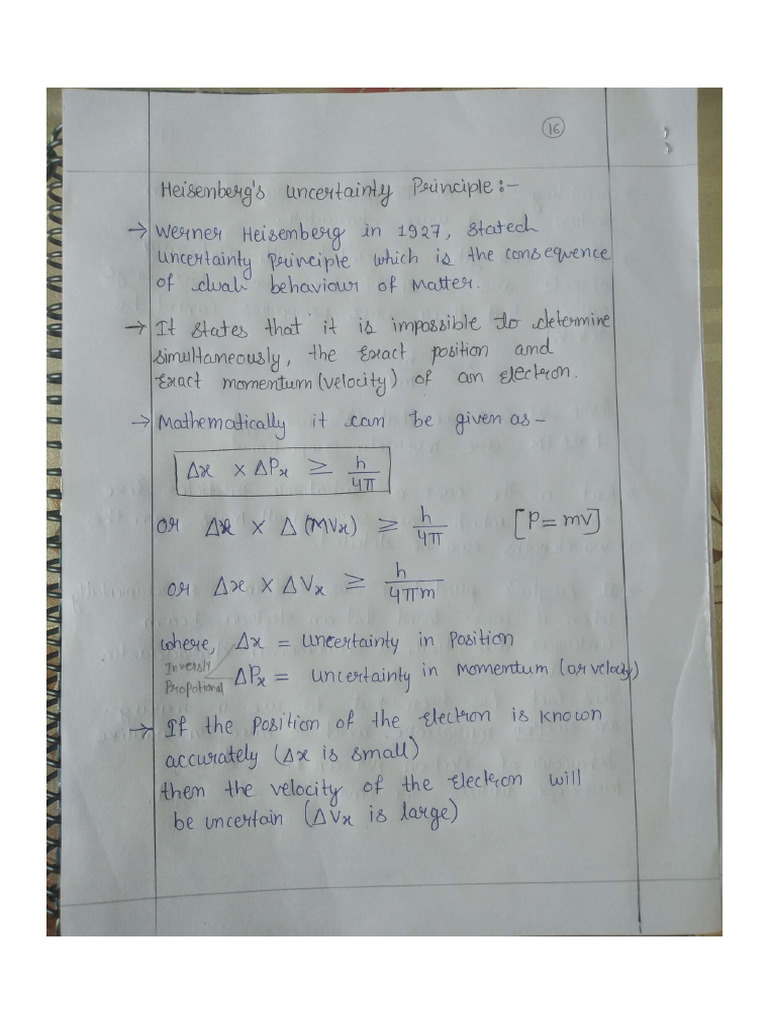 16
Heisenberg's uncertainty Principle :-
→ Werner Heisenberg in 1927, stated
uncertainty principle which is the consequence
of dual behaviour of Matter.
→ It states that it is impossible to determine
simultaneously, the Exact position and
Exact momentum (velocity) of an electron.
→ Mathematically it can be given as -
Δx × ΔPx ≥ h/4π
or Δx × Δ(MVx) ≥ h/4π [P = mv]
or Δx × ΔVx ≥ h/4πm
where, Δx = uncertainty in Position
Inversly
Propotional ΔPx = uncertainty in momentum (or velocity)
→ If the Position of the electron is known
accurately (Δx is small)
then the velocity of the Electron will
be uncertain (ΔVx is large)